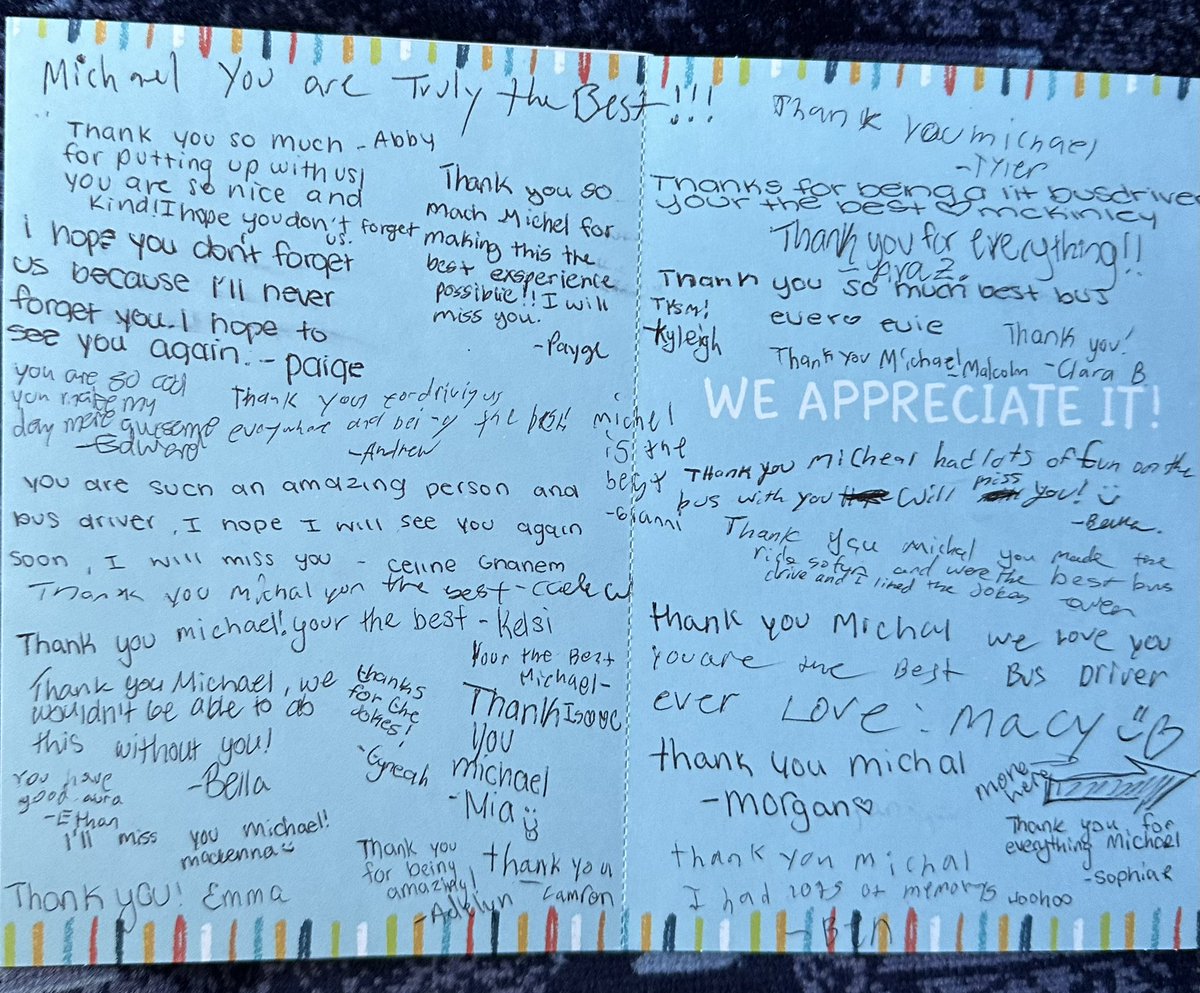 Michael You are Truly the Best!!!
Thank you so much - Abby
for putting up with us,
you are so nice and
kind! I hope you don't forget
us.
Thank you so
mach Michel for
making this the
best exsperience
possible!! I will
miss you.
-Payge
i hope you don't forget
us because I'll never
forget you. I hope to
see you again. - Paige
you are so cool
you make my
day more awesome
-Edward
Thank you for driving us
everywhere and being the best!
-Andrew
michel
is the
best
-Gianni
you are such an amazing person and
bus driver, I hope I will see you again
soon, I will miss you - Celine Gnanem
Thank you Michal you the best -
Thank you michael! your the best - Kelsi
Thank you Michael, we
wouldn't be able to do
this without you!
-Bella
thanks
for the
jokes!
Your the Best
Michael-
Isaac
Thank
you
michael
-Mia
You have
good aura
-Ethan
I'll miss you michael!
mackenna
Thank you! Emma
Thank you
for being
amazing!
-Adelyn
thank you
-Camron
Thank you michael
-Tyler
Thanks for being a lit busdriver
your the best ♡ mckinley
Thank you for everything!!
- Araz.
Thank you so much best bus
ever evie
TYSM!
-Kyleigh
Thank you!
-Clara B
Thank you Michael! Malcolm
WE APPRECIATE IT!
Thank you Micheal had lots of fun on the
bus with you will miss you!
Thank you Michal you made the
ride so fun and were the best bus
drive and I liked the jokes
-owen
thank you Michal we love you
you are the Best Bus Driver
ever Love: Macy
thank you michal
-morgan♡
more
here
Thank you for
everything Michael
-Sophiae
thank you michal
I had lots of memorys woohoo
-Ben